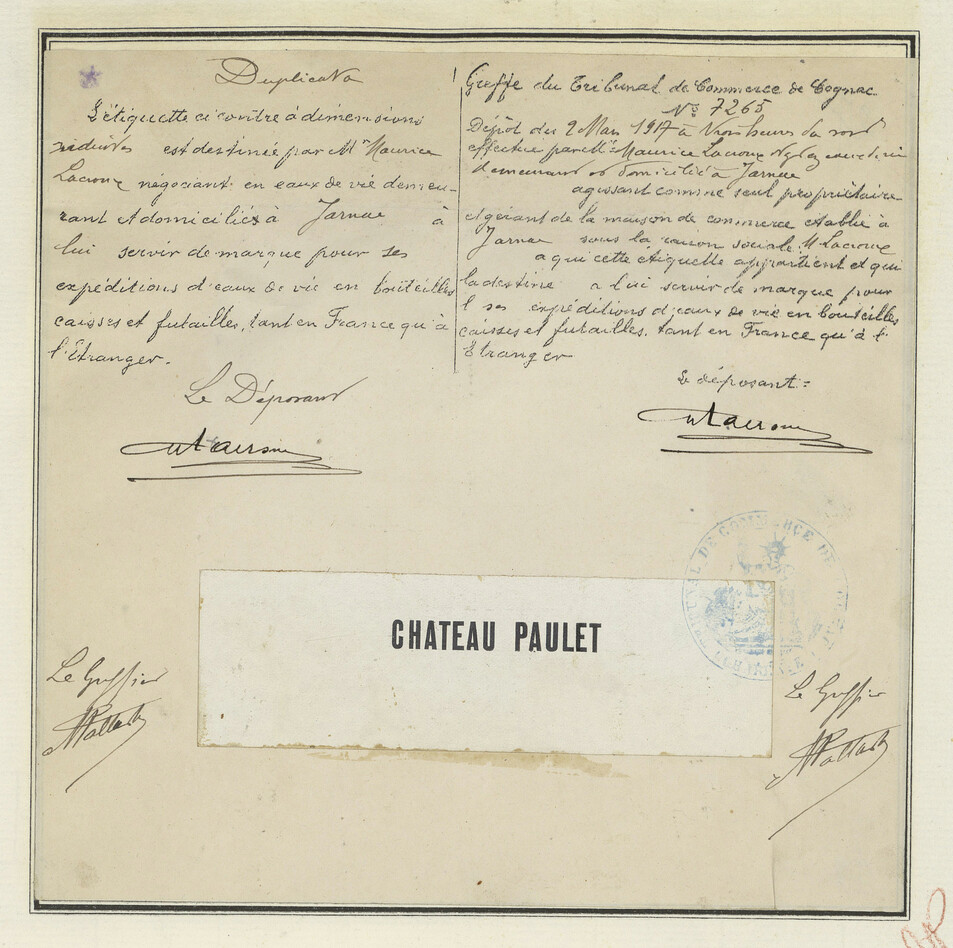 Duplicata
L'étiquette ci contre à dimensions
réduites est destinée par Mr Maurice
Lacroux négociant en eaux de vie demeu-
rant et domicilié à Jarnac à
lui servir de marque pour ses
expéditions d'eaux de vie en bouteilles
caisses et futailles, tant en France qu'à
l'Etranger.
Le Déposant
Greffe du Tribunal de Commerce de Cognac
No 7265
Dépôt du 2 Mars 1917 à trois heures du soir
effectué par Mr Maurice Lacroux
demeurant et domicilié à Jarnac
agissant comme seul propriétaire
et gérant de la maison de commerce établie à
Jarnac sous la raison sociale M Lacroux
a qui cette étiquette appartient et qui
la destine a lui servir de marque pour
ses expéditions d'eaux de vie en bouteilles
caisses et futailles, tant en France qu'à l'
Etranger
Le déposant =
MLacroux
MLacroux
TRIBUNAL DE COMMERCE DE
CHATEAU PAULET
Le Greffier
Le Greffier